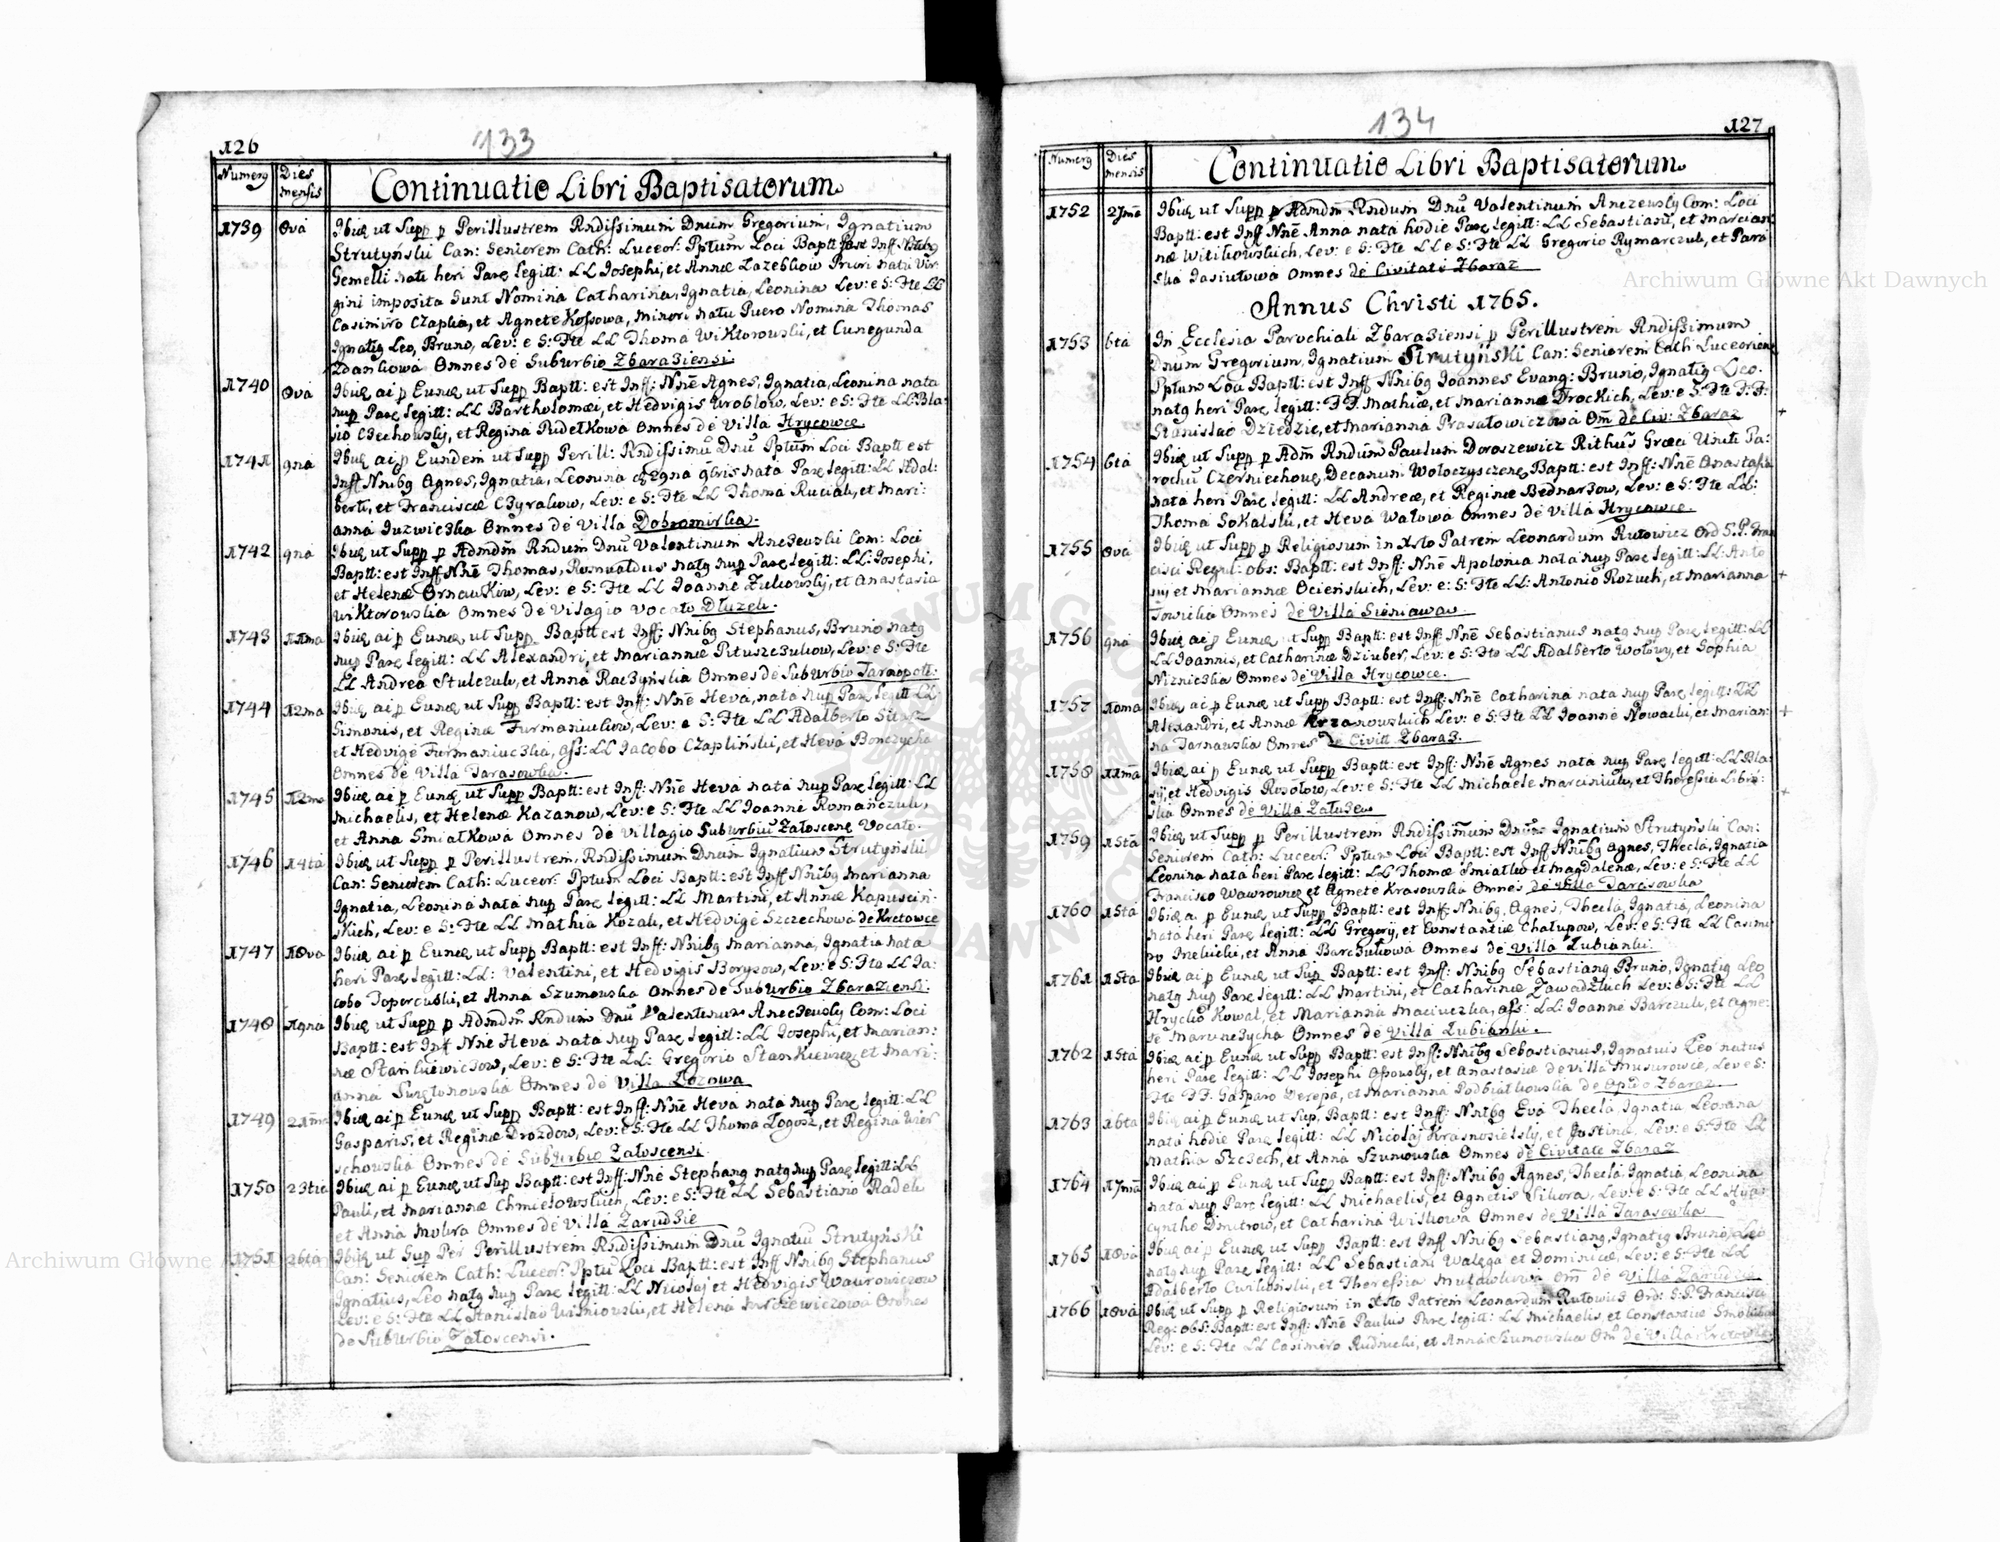 126
133
Numerq Dies mensis
Continuatio Libri Baptisatorum
1739 8va Ibiq ut Supp p Perillustrem Rndissimum Dnum Gregorium, Ignatium
Strutyński Can: Seniorem Cath: Luceor: Pptum Loci Baptt: est Inff Nnibq
Gemelli nati heri Parē legitt: LL Josephi, et Annæ Lazebkow Priori natu Vir
gini imposita sunt Nomina Catharina, Ignatia, Leonina Lev: e S: Fte LL
Casimiro Czaplia, et Agnete Kossowa, minori natu Puero Nomina Thomas
Ignatiq Leo, Bruno, Lev: e S: Fte LL Thoma Wiktorowski, et Cunegunda
Zdankowa Omnes de Suburbio Zbaraziensi.
1740 8va Ibiq ai p Eunq ut Supp Baptt: est Inff: Nnē Agnes, Ignatia, Leonina nata
nup Parē legitt: LL Bartholomæi, et Hedvigis Wroblow, Lev: e S: Fte LL: Bla:
sio Czechowsky, et Regina Pudełkowa Omnes de Villa Hrycowce
1741 9na Ibiq ai p Eundem ut Supp Perill: Rndissimū Dnū Pptum Loci Baptt est
Inff Nnibq Agnes, Ignatia, Leonina nata Parē legitt: LL Adal:
berti, et Franciscæ Czyrakow, Lev: e S: Fte LL Thoma Ruciak, et Mari:
anna Juzwiczka Omnes de Villa Dobromirka.
1742 9na Ibiq ut Supp p Admdm Rndum Dnū Valentinum Anczewski Com: Loci
Baptt: est Inff Nnē Thomas, Romualdus natq nup Parē legitt: LL: Josephi,
et Helenæ Ornawkow, Lev: e S: Fte LL Joanne Zulkowsky, et Anastasia
Wiktorowska Omnes de Vilagio vocato Dłuzek.
1743 11ma Ibiq ai p Eunq, ut Supp Baptt est Inff: Nnibq Stephanus, Bruno natq
nup Parē legitt: LL Alexandri, et Mariannæ Pituszczukow, Lev: e S: Fte
LL Andrea Stulczuk, et Anna Raczyńska Omnes de Suburbio Tarnopoli:
1744 12ma Ibiq ai p Eunq ut Supp Baptt: est Inff: Nnē Heva, nata nup Parē legitt LL
Simonis, et Reginæ Furmaniukow, Lev: e S: Fte LL Adalberto
et Hedvige Furmaniuczka, Ass: LL Jacobo Czapliński, et Heva Bonczycha
Omnes de Villa Tarasowka.
1745 12ma Ibiq ai p Eunq ut Supp Baptt: est Inff: Nnē Heva nata nup Parē legitt: LL
Michaelis, et Helenæ Kazanow, Lev: e S: Fte LL Joanne Romanczuk,
et Anna Smiałkowa Omnes de Villagio Suburbiū Załoscenē Vocato.
1746 14ta Ibiq ut Supp p Perillustrem, Rndissimum Dnum Ignatium Strutyński
Can: Seniorem Cath: Luceor: Pptum Loci Baptt: est Inff Nnibq Marianna
Ignatia, Leonina nata nup Parē legitt: LL Martini, et Annæ Kapuscin:
skich, Lev: e S: Fte LL Mathia Kozak, et Hedvige Szczechowa de Kretowce
1747 18va Ibiq ai p Eunq ut Supp Baptt: est Inff: Nnibq Marianna, Ignatia nata
heri Parē legitt: LL: Valentini, et Hedvigis Borysow, Lev: e S: Fte LL Ja:
cobo Toporowski, et Anna Szumowska Omnes de Suburbio Zbaraziensi.
1748 19na Ibiq ut Supp p Admdm Rndum Dnū Valentinum Anczewsky Com: Loci
Baptt: est Inff Nnē Heva nata nup Parē legitt: LL Josephi, et Marian:
næ Stankiewiczow, Lev: e S: Fte LL: Gregorio Stankiewicz, et Mari:
anna Omnes de Villa Łoznwa
1749 21ma Ibiq ai p Eunq ut Supp Baptt: est Inff: Nnē Heva nata nup Parē legitt: LL
Gasparis, et Reginæ Drozdow, Lev: e S: Fte LL Thoma Łogosz, et Regina Wier
schowska Omnes de Suburbio Załoscensi
1750 23tia Ibiq ai p Eunq ut Sup Baptt: est Inff: Nnē Stephanq natq nup Parē legitt: LL
Pauli, et Mariannæ Chmielowskich, Lev: e S: Fte LL Sebastiano Radek
et Anna Mulira Omnes de Villa Zarudzie
1751 26ta Ibiq ut Sup Per Perillustrem Rndissimum Dnū Ignatiū Strutyński
Can: Seniorem Cath: Luceor: Pptū Loci Baptt: est Inff Nnibq Stephanus
Ignatius, Leo natq nup Parē legitt: LL Nicolaj et Hedvigis Wawrowiczow
Lev: e S: Fte LL Stanislao Wisniowski, et Helena Omnes
de Suburbio Załoscensi.
134
127
Numerq Dies mensis
Continuatio Libri Baptisatorum
1752 27ma Ibiq ut Supp p Admdm Rndum Dnū Valentinum Anczewsky Com: Loci
Baptt: est Inff Nnē Anna nata hodie Parē legitt: LL Sebastiani, et Marcian
næ Witikowskich, Lev: e S: Fte LL Gregorio Rymarczuk, et Para
skia Jasiułowa Omnes de Civitate Zbaraz
Annus Christi 1765.
1753 6ta In Ecclesia Parochiali Zbaraziensi p Perillustrem Rndissimum
Dnum Gregorium, Ignatium Strutyński Can: Seniorem Cath Luceorienē
Pptum Loci Baptt: est Inff Nnibq Joannes Evang: Bruno, Ignatiq Leo.
natq heri Parē legitt: FF. Mathiæ, et Mariannæ Drockich, Lev: e S: Fte F.F:
Stanislao Dziedzic, et Marianna Prasałowiczowa Om̄ de Civ: Zbaraz +
1754 6ta Ibiq ut Supp p Adm Rndum Paulum Doroszewicz Rithus Græci Uniti Pa:
rochū Czerniechovē, Decanum Wołoczyscenē, Baptt: est Inff: Nnē Anastasia
nata heri Parē legitt: LL Andreæ, et Reginæ Bednarzow, Lev: e S: Fte LL:
Thoma Sokalski, et Heva Wałowa Omnes de Villa Hrycowce.
1755 8va Ibiq ut Supp p Religiosum in Xsto Patrem Leonardum Rutowicz Ord S: P. Fran
cisci Regul: obs: Baptt: est Inff: Nnē Apolonia nata nup Parē legitt: LL: Anto
nij et Mariannæ Ocienskich, Lev: e: S: Fte LL: Antonio Kozuch, et Marianna +
Omnes de Villa Sieniawa
1756 9na Ibiq ai p Eunq ut Supp Baptt: est Inff: Nnē Sebastianus natq nup Parē legitt: LL
LL Joannis, et Catharinæ Dziuber, Lev: e S: Fte LL Adalberto Wołowy, et Sophia
Niznicka Omnes de Villa Hrycowce.
1757 10ma Ibiq ai p Eunq ut Supp Baptt: est Inff: Nnē Catharina nata nup Parē legitt: LL
Alexandri, et Annæ Lev: e S: Fte LL Joanne Nowacki, et Marian: +
na Tarnawska Omnes de Civitt Zbaraz.
1758 11ma Ibiq ai p Eunq ut Supp Baptt: est Inff: Nnē Agnes nata nup Parē legitt: LL Bla
sij, et Hedvigis Rosołow, Lev: e S: Fte LL Michaele Marciniuk, et Theressia +
Omnes de Villa Załuze
1759 15ta Ibiq ut Supp p Perillustrem Rndissimum Dnum Ignatium Strutyński Can:
Seniorem Cath: Luceor: Pptum Loci Baptt: est Inff Nnibq Agnes, Thecla, Ignatia
Leonina nata heri Parē legitt: LL Thomæ Smiałko et Magdalenæ, Lev: e S: Fte LL
Francisco Wawrowicz et Agnete Krasowska Omnes de Villa Tarasowka
1760 15ta Ibiq ai p Eunq ut Supp Baptt: est Inff: Nnibq, Agnes, Thecla, Ignatia, Leonina
nata heri Parē legitt: LL Gregorij, et Constantiæ Chałupow, Lev: e S: Fte LL Casimi
ro et Anna Barczukowa Omnes de Villa Łubianki.
1761 15ta Ibiq ai p Eunq ut Sup Baptt: est Inff: Nnibq Sebastianq Bruno, Ignatiq Leo
natq nup Parē legitt: LL Martini, et Catharinæ Zawadzkich Lev: e S: Fte LL
Hrycko Kowal, et Marianna Maciuczka, Ass: LL: Joanne Barczuk, et Agne:
te Omnes de Villa Łubianki.
1762 15ta Ibiq ai p Eunq ut Supp Baptt: est Inff: Nnibq Sebastianus, Ignatius Leo natus
heri Parē legitt: LL Josephi et Anastasiæ de Villa Musurowce, Lev: e S:
Fte F.F. Gasparo Derepa, et Marianna Podbialkowska de Oppido Zbaraz
1763 16ta Ibiq ai p Eunq ut Sup, Baptt: est Inff: Nnibq Eva Thecla, Ignatia Leonana
nata hodie Parē legitt: LL Nicolaj Krasnosielsky, et Justinæ, Lev: e S: Fte LL
Mathia Szczech, et Anna Szumowska Omnes de Civitate Zbaraz
1764 17ma Ibiq ai p Eunq ut Supp Baptt: est Inff: Nnibq Agnes, Thecla, Ignatia, Leonina
nata nup Parē legitt: LL Michaelis, et Agnetis Sikora, Lev: e S: Fte LL Hya:
cyntho Dmitrow, et Catharina Witkowa Omnes de Villa Tarasowka
1765 18va Ibiq ai p Eunq ut Supp Baptt: est Inff Nnibq Sebastianq, Ignatiq Bruno, Leo
natq nup Parē legitt: LL Sebastiani Walega et Dominicæ, Lev: e S: Fte LL
Adalberto et Theressia Om̄ de Villa Zarudzie
1766 18va Ibiq ut Supp p Religiosum in Xsto Patrem Leonardum Rutowicz Ord: S: P. Francisci
Reg: obs: Baptt: est Inff: Nnē Paulus Parē legitt: LL Michaelis, et Constantiæ
Lev: e S: Fte LL Casimiro Rudnicki, et Anna Szumowska Om̄ de Villa Kretowce
Archiwum Główne Akt Dawnych
Archiwum Główne Akt Dawnych